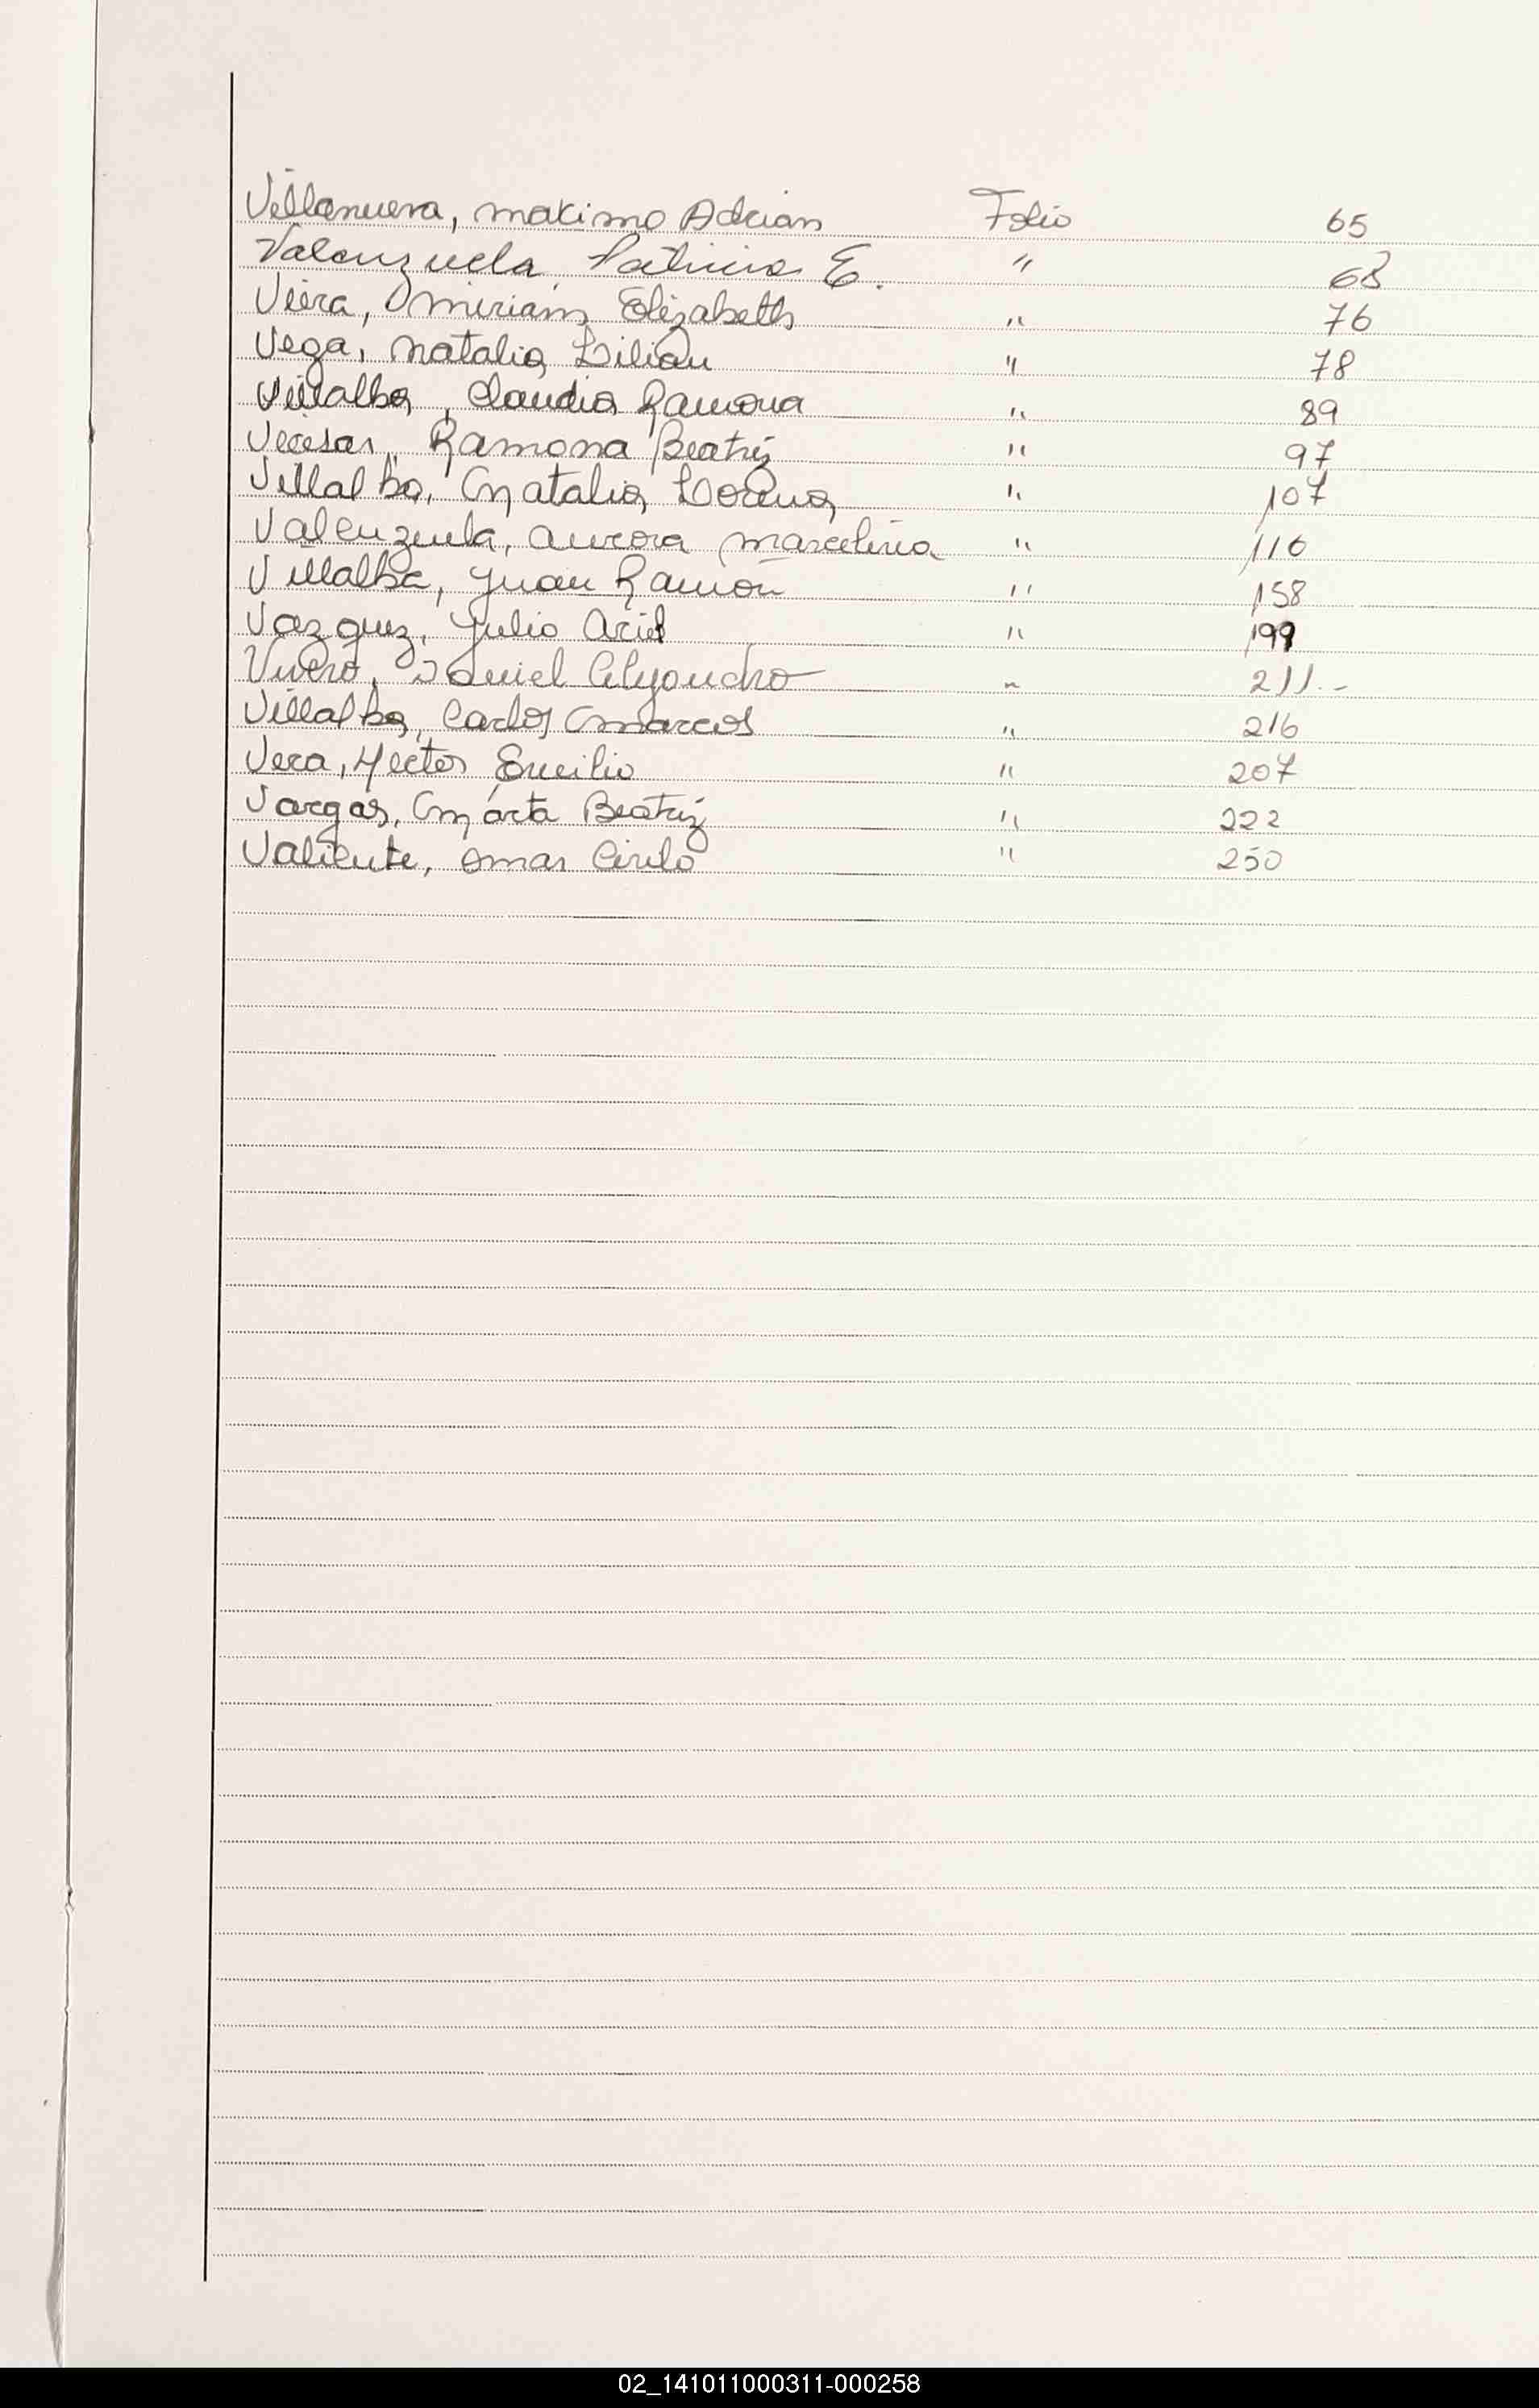 Villanueva, maximo Adrian Folio 65
Valenzuela, Patricia E. " 68
Vieira, Miriam Elizabeth " 76
Vega, Natalia Lilian " 78
Villalba, Claudia Ramona " 89
Ramona Beatriz " 97
Villalba, Natalia Lorena " 107
Valenzuela, Aurora marcelina " 116
Villalba, Juan Ramón " 158
Vazquez, Julio Ariel " 199
Vivero, Daniel Alejandro " 211.-
Villalba, Carlos Marcos " 216
Vera, Hector Emilio " 207
Vargas, Marta Beatriz " 222
Valiente, Omar Cirilo " 250
02_141011000311-000258